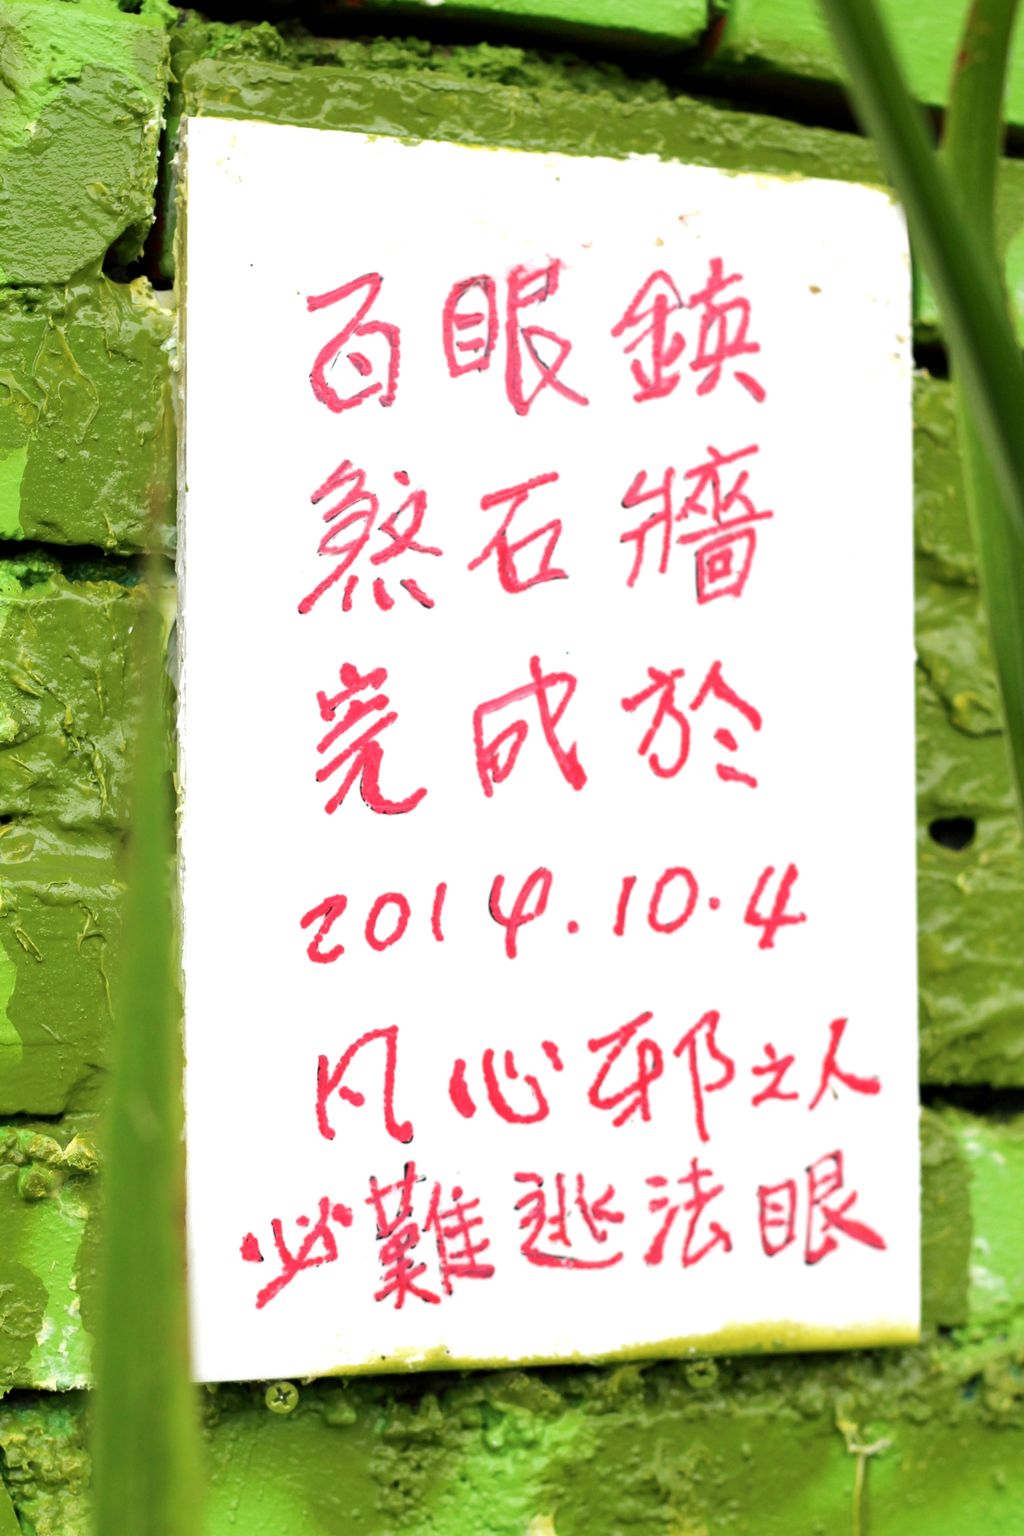 百眼鎮
煞石牆
完成於
2014.10.4
凡心邪之人
必難逃法眼